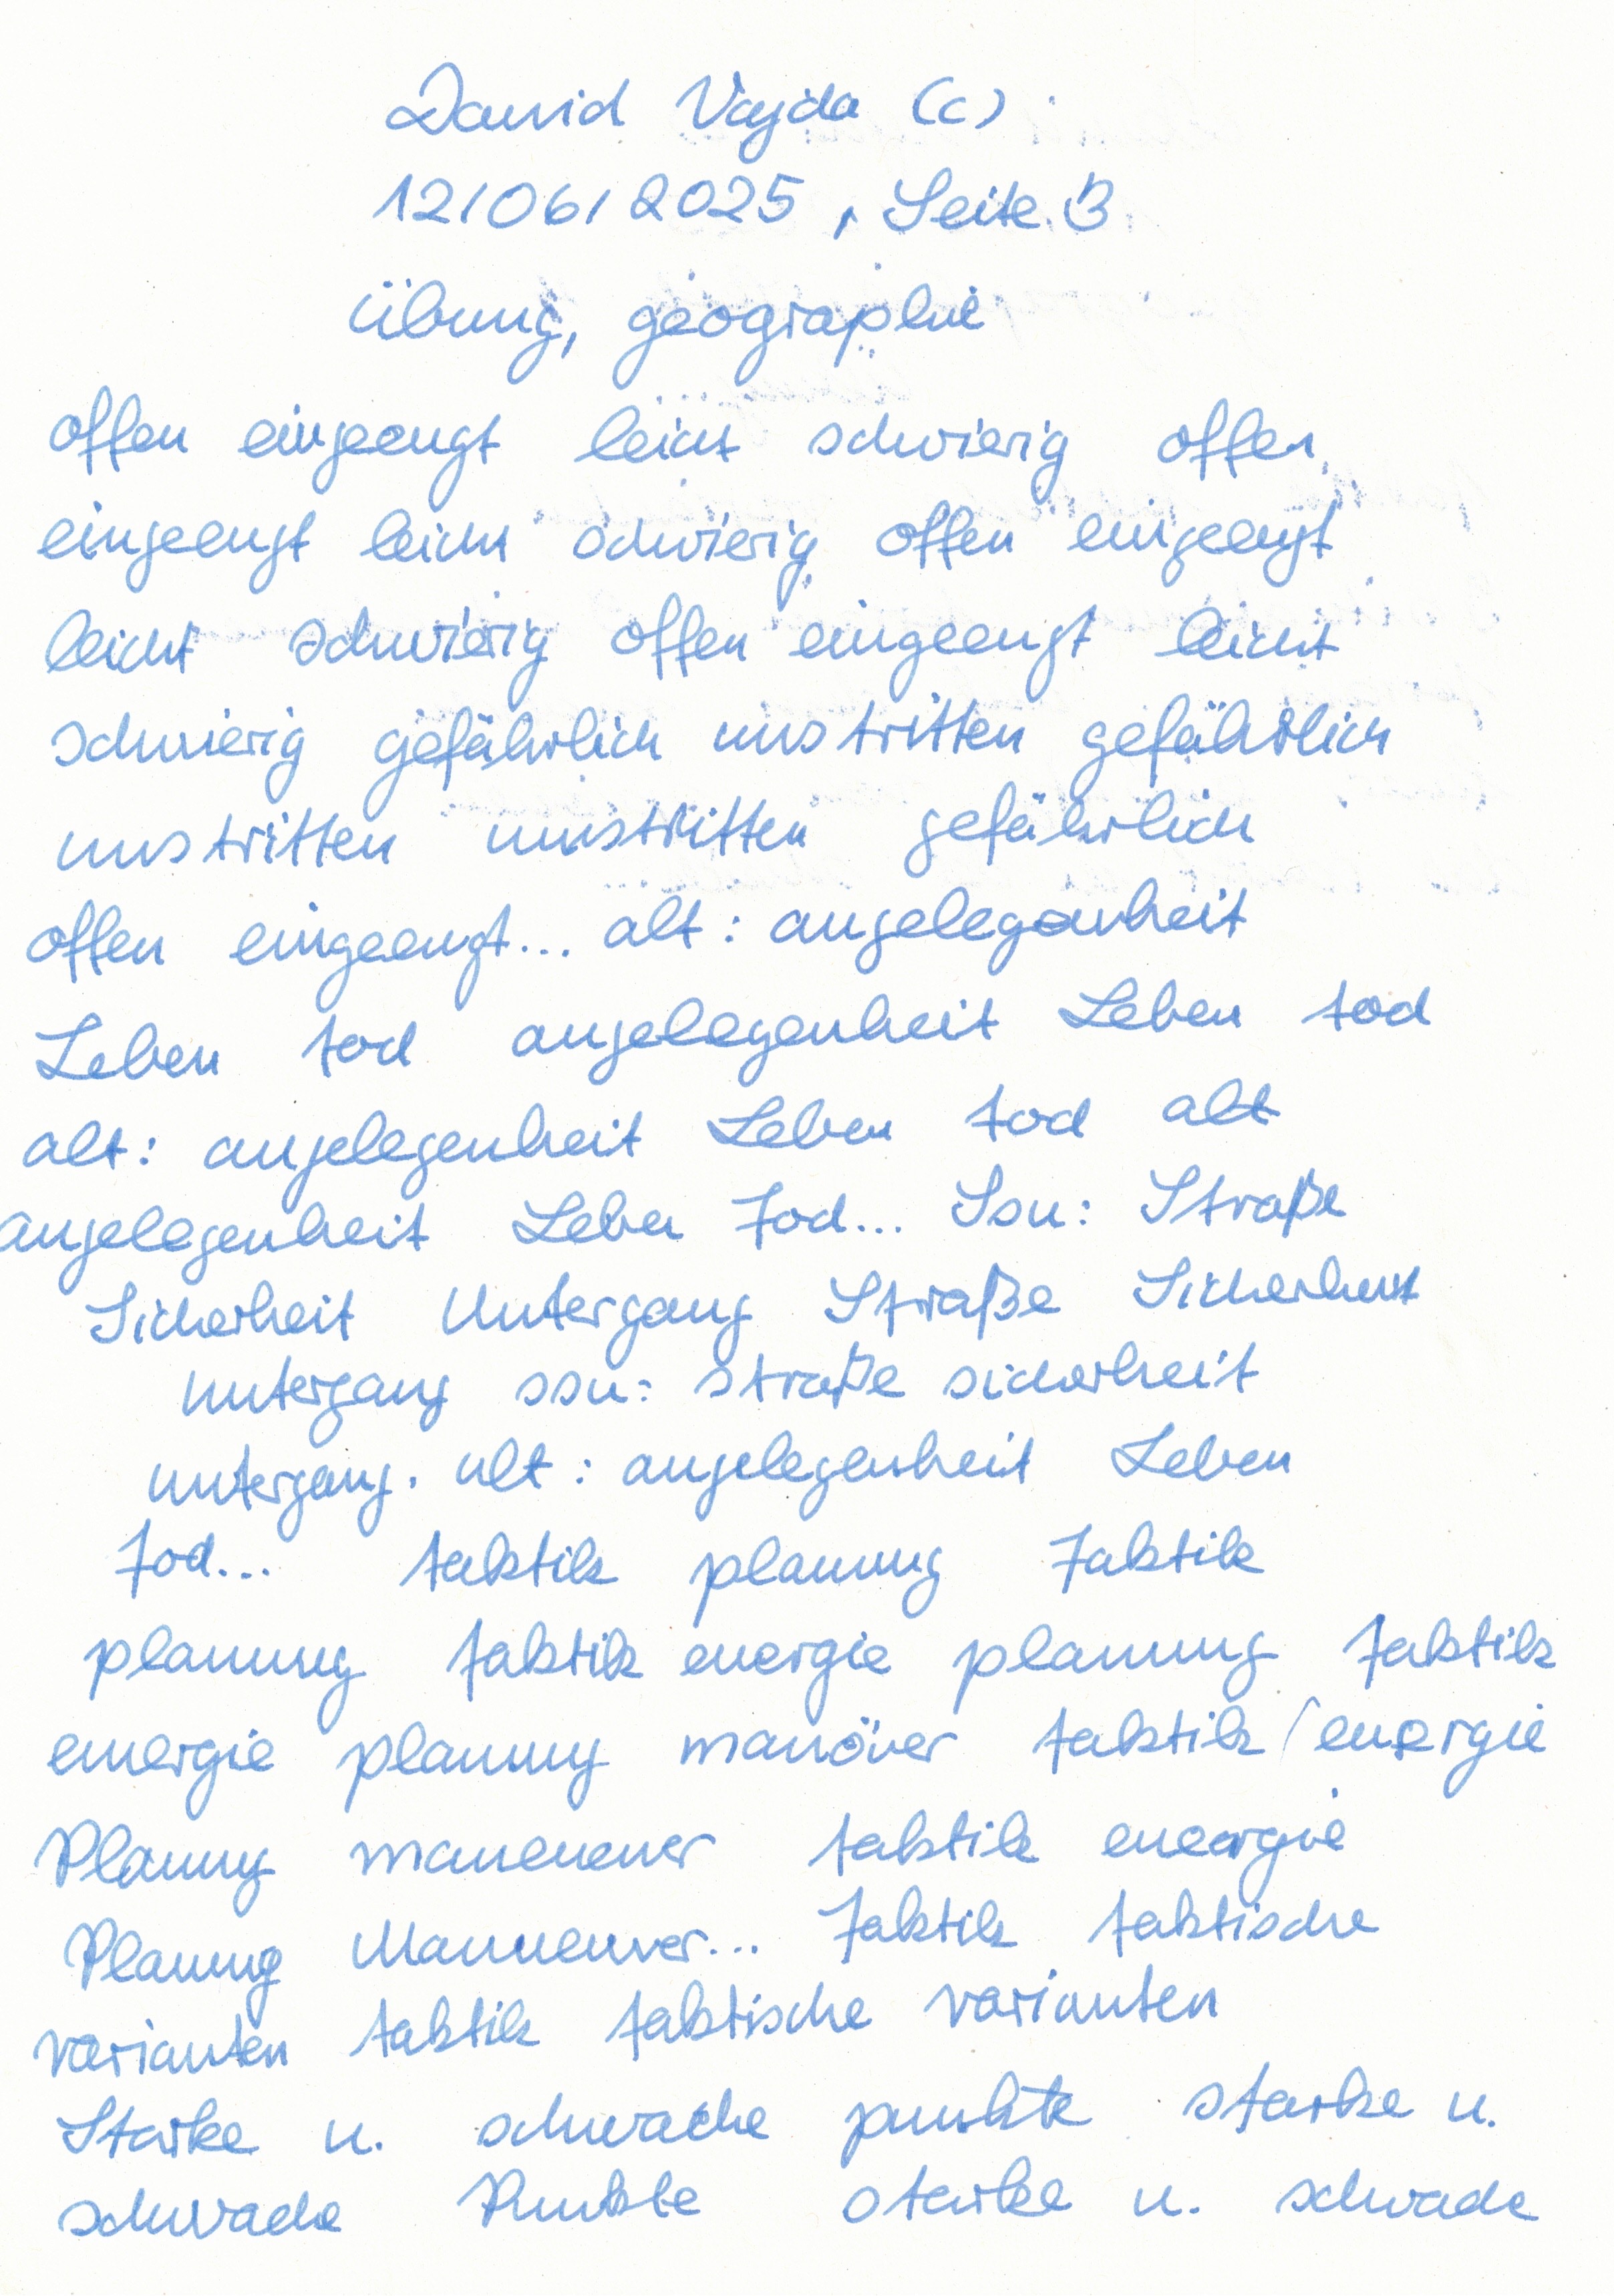 David Vajda (C)
12/06/2025, Seite B
übung, geographie
offen eingeengt leicht schwierig offen
eingeengt leicht schwierig offen eingeengt
leicht schwierig offen eingeengt leicht
schwierig gefährlich umstritten gefährlich
umstritten umstritten gefährlich
offen eingeengt... alt: angelegenheit
Leben tod angelegenheit Leben tod
alt: angelegenheit Leben tod alt
angelegenheit Leben Tod... Ssu: Straße
Sicherheit Untergang Straße Sicherheit
untergang ssu: straße sicherheit
untergang. alt: angelegenheit Leben
Tod... taktik planung Taktik
planung taktik energie planung taktik
energie planung manöver taktik energie
Planung manoever taktik energie
Planung Manoever... Taktik taktische
varianten taktik taktische varianten
Starke u. schwache punkte starke u.
schwache Punkte starke u. schwache